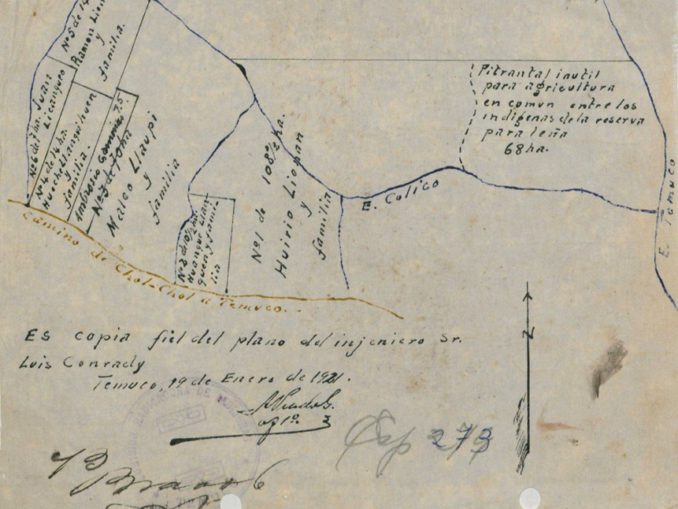 Nº5 de 14
Ramon Lien
y
familia.
Nº6 de 7 ha. Juan
Licanqueo
Nº4 de 14 ha.
Huechellanquihuen
y
familia.
Ambrosio
Nº3 de 70 ha
Maleo Llaupi
y
familia
Nº2 de 10 1/2 ha.
Huenque Llan
quen y fami
lia
Nº1 de 108 1/2 ha.
Huirio Liopan
y
familia
Pitrantal inutil
para agricultura
en comun entre los
indigenas de la reserva
para leña
68 ha.
E. Colico
E. Temuco
Camino de Chol-Chol a Temuco.
N
Es copia fiel del plano del injeniero Sr.
Luis Conrady
Temuco, 19 de Enero de 1921.
of 1º
Exp 273